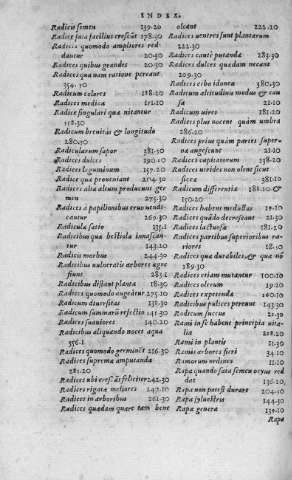 INDEX.
Radicis semen 139.20
Radice saxa facilius crescunt 178.30
Radices quomodo ampliores red-
dantur 20.30
Radices quibus grandes 20.30
Radices qua nam ratione pereant
Radicum colores
Radices medica 151.20
Radice singulari quæ nitantur
158.30
Radicum brevitas & longitudo
280.30
Radicularum sapor 381.50
Radices dulces 190.10
Radices leguminum 157.20
Radices quæ proveniant 204.30
Radices alta altum producunt ger-
men 275.30
Radices à papilionibus erus uendi-
cantur 269.30
Radicula satio
Radicibus quæ bestiola innascan-
tur 143.20
Radicis morbus 244.30
Radicibus uulneratis arbores ægre
fiunt
Radicibus distant planta 18.30
Radices quomodo augeantur 275.10
Radicum diuersitas
Radicum summarū resectio 141.30
Radices suauiores 140.20
Radicibus aliquando nocet aqua
356.1
Radices quomodo germinēt 226.30
Radices suprema amputanda
281.20
Radices ubi crescāt feliciter 242.30
Radices rigata meliores 147.10
Radices in arboribus 261.30
Radices quædam quare tam bene
oleant 225.20
Radices uentres sunt plantarum
222.30
Radices cauté putanda 283.30
Radices dulces quædam necant
209.30
Radices cibo idonea 380.30
Radicum altitudini modus & cau
sa 21.10
Radicum uires 181.20
Radices plus nocent quàm umbra
286.20
Radices prius quàm partes super-
na augescunt 21.20
Radices capitatorum 138.20
Radices uirides non olent sed
sicca 381.10
Radicum differentia 181.20 &
150.20
Radices habent medullas 19.10
Radices quādo decrescant 21.30
Radices lactuosa 181.20
Radices partibus superioribus ua-
riores 18.30
Radices quæ durabiles, & quæ nō
289.30
Radices etiam mutantur 100.10
Radices oleram 19.20
Radices expetenda 160.10
Radicibus pulices pereunt 143.30
Radicum succus 21.30
Rami in se habent principia uita-
lia 218.20
Rami in plantis 21.30
Ramis arbores fieri 34.10
Ramorum ordines 11.10
Rapa quando sata semen ocyus red
dat 136.20,
Rapa non potest durare 204.10
Rapa syluestris 144.30
Rapa genera 139.10
Rapa